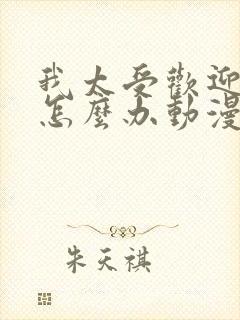 我太受歡迎
怎麼办動漫
朱天祺